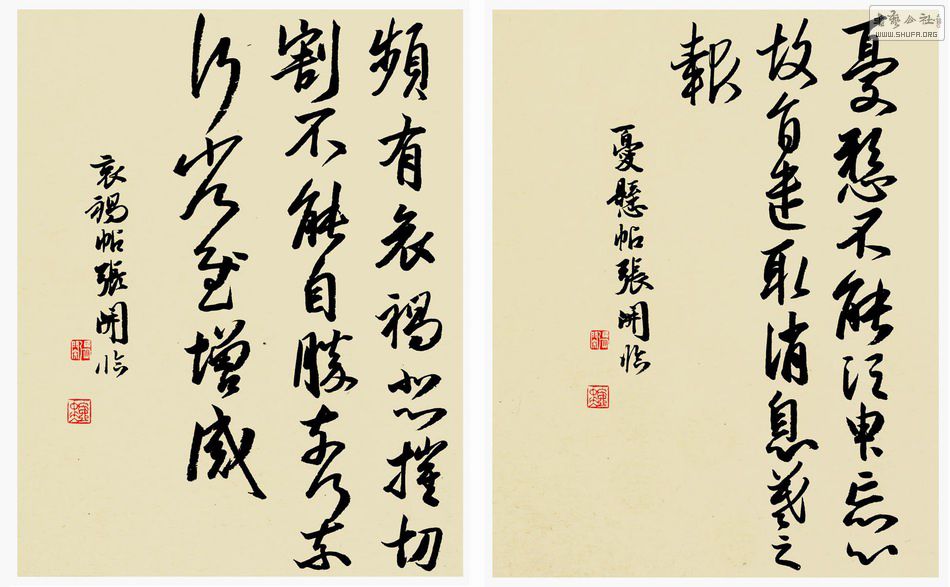 憂懸不能須臾忘心
故旨遣取消息羲之
報
憂懸帖張開臨
頻有哀禍悲摧切
割不能自勝奈何奈
何省慰增感
哀禍帖張開臨
書藝公社
WWW.SHUFA.ORG